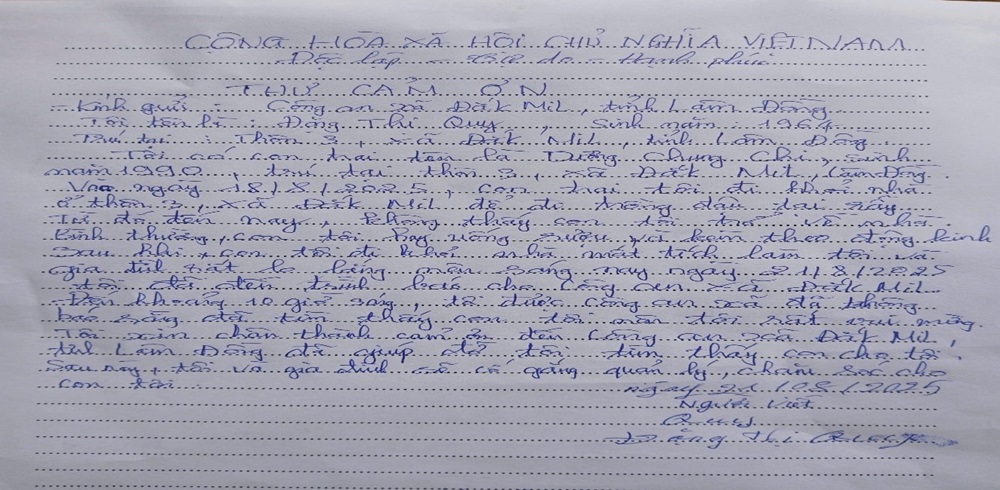 CỘNG HÒA XÃ HỘI CHỦ NGHĨA VIỆT NAM
Độc lập - Tự do - Hạnh phúc
THƯ CẢM ƠN
Kính gửi : Công an xã Đắk Mil, tỉnh Lâm Đồng
Tôi tên là : Đặng Thị Quy, Sinh năm 1964
Trú tại : Thôn 3, xã Đắk Mil, tỉnh Lâm Đồng.
Tôi có con trai tên là Dương Chung Chi, sinh
năm 1990, trú tại thôn 3, xã Đắk Mil, Lâm Đồng.
Vào ngày 18/8/2025, con trai tôi đi khỏi nhà
ở thôn 3, xã Đắk Mil để đi trông dâu tại rẫy
Từ đó đến nay, không thấy con tôi trở về nhà
Bình thường, con tôi hay uống rượu và kèm theo động kinh
Sau khi con tôi đi khỏi nhà mất tích làm tôi và
gia đình rất lo lắng nên sáng nay ngày 21/8/2025
tôi đã đến trình báo cho Công an xã Đắk Mil
Đến khoảng 10 giờ sáng, tôi được công an xã đã thông
báo rằng đã tìm thấy con tôi nên tôi rất vui mừng.
Tôi xin chân thành cảm ơn đến Công an xã Đắk Mil,
tỉnh Lâm Đồng đã giúp đỡ tôi tìm thấy con cho tôi.
Sau này tôi và gia đình sẽ cố gắng quản lý, chăm sóc cho
con tôi.
ngày 21/08/2025
Người viết
Quy
Đặng Thị Quy